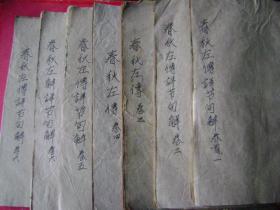 春秋左傳詳節句解 卷首一
春秋左傳詳節句解 卷二
春秋左傳 卷三
春秋左傳 卷四
春秋左傳詳節句解 卷五
春秋左解詳節句解 卷六
春秋左傳詳節句解 卷八